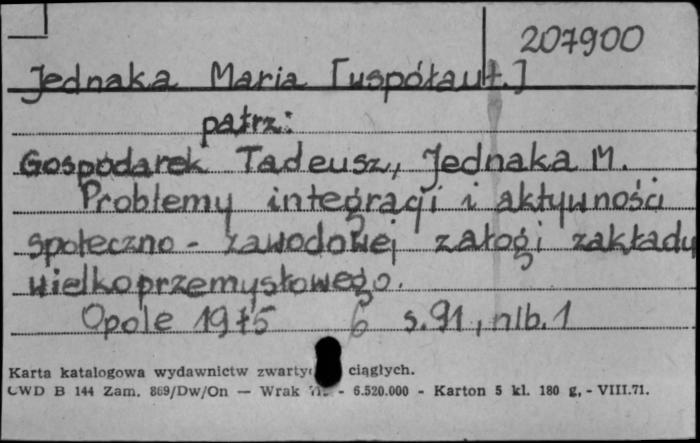 207900
Jednaka Maria [współaut.]
patrz:
Gospodarek Tadeusz, Jednaka M.
Problemy integracji i aktywności
społeczno - zawodowej załogi zakładu
wielkoprzemysłowego.
Opole 1975 6 s. 91, nlb. 1
Karta katalogowa wydawnictw ciągłych.
CWD B 144 Zam. 869/Dw/On — Wrak - 6.520.000 - Karton 5 kl. 180 g, - VIII.71.